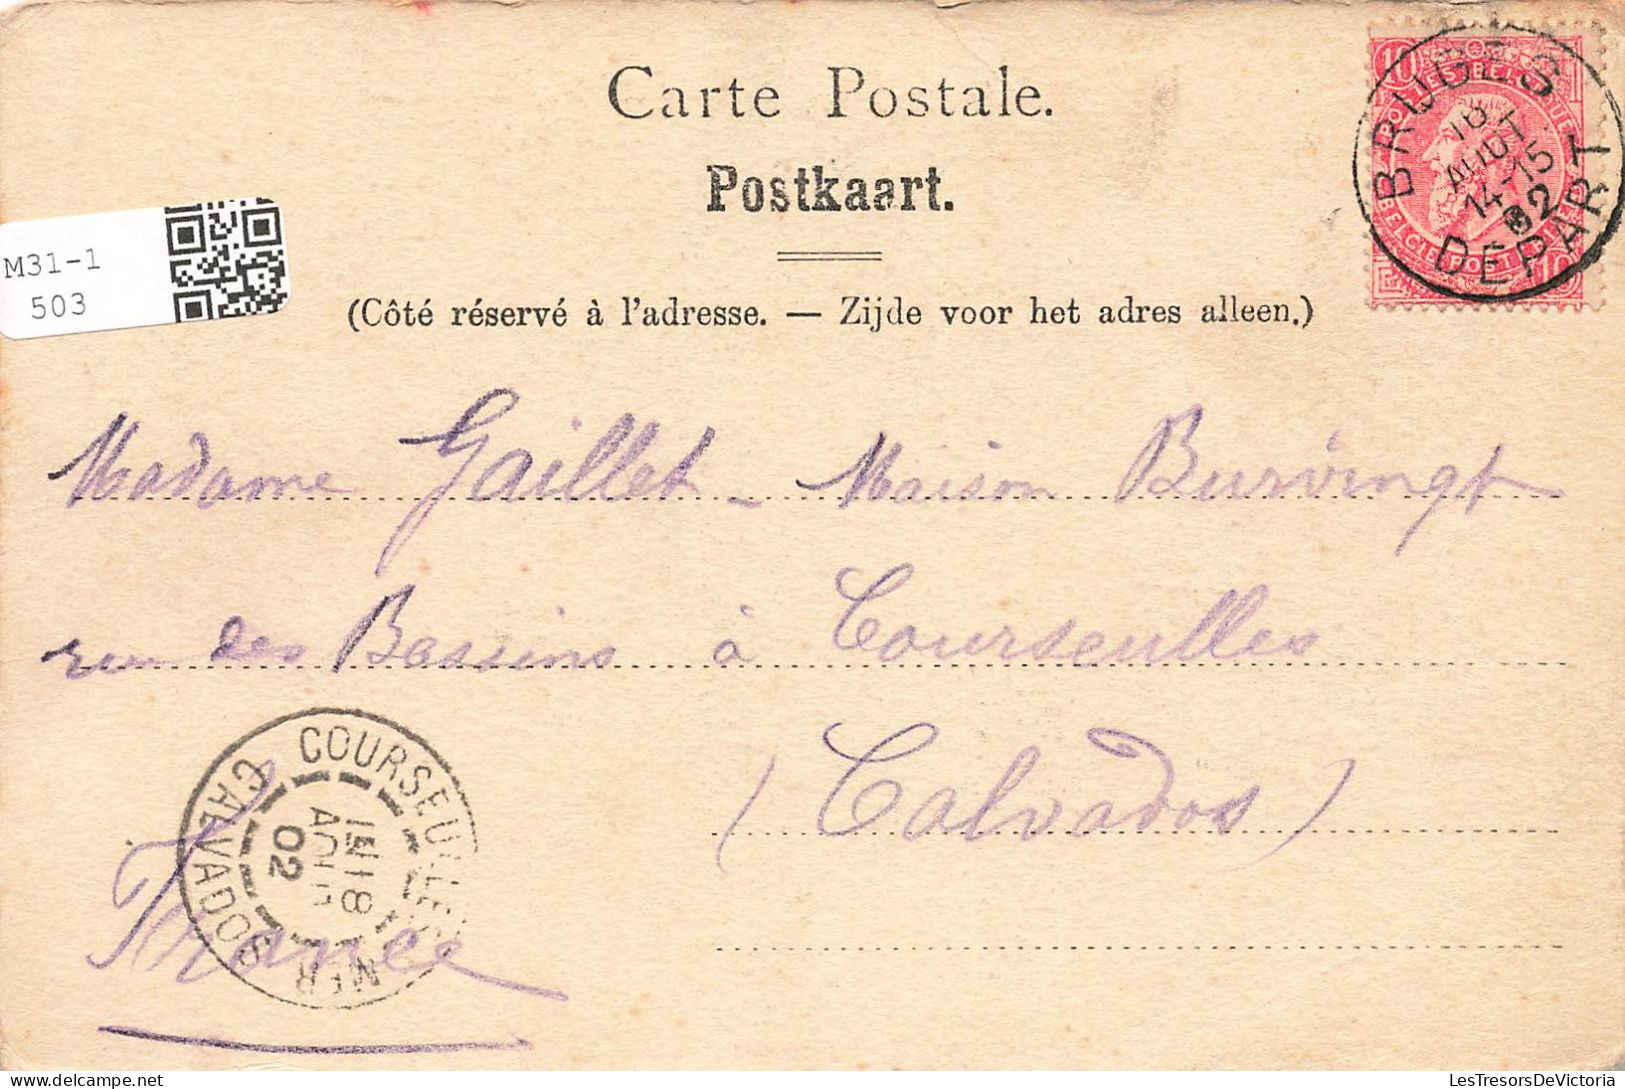 Carte Postale.
Postkaart.
(Côté réservé à l'adresse. — Zijde voor het adres alleen.)
M31-1
503
BRUGES
AOUT
14-15
02
DEPART
10
Madame Gaillet - Maison Burvingt
rue des Bassins à Courseulles
(Calvados)
France
COURSEULLES
MER
CALVADOS
18
AOUT
02
LesTresorsDeVictoria